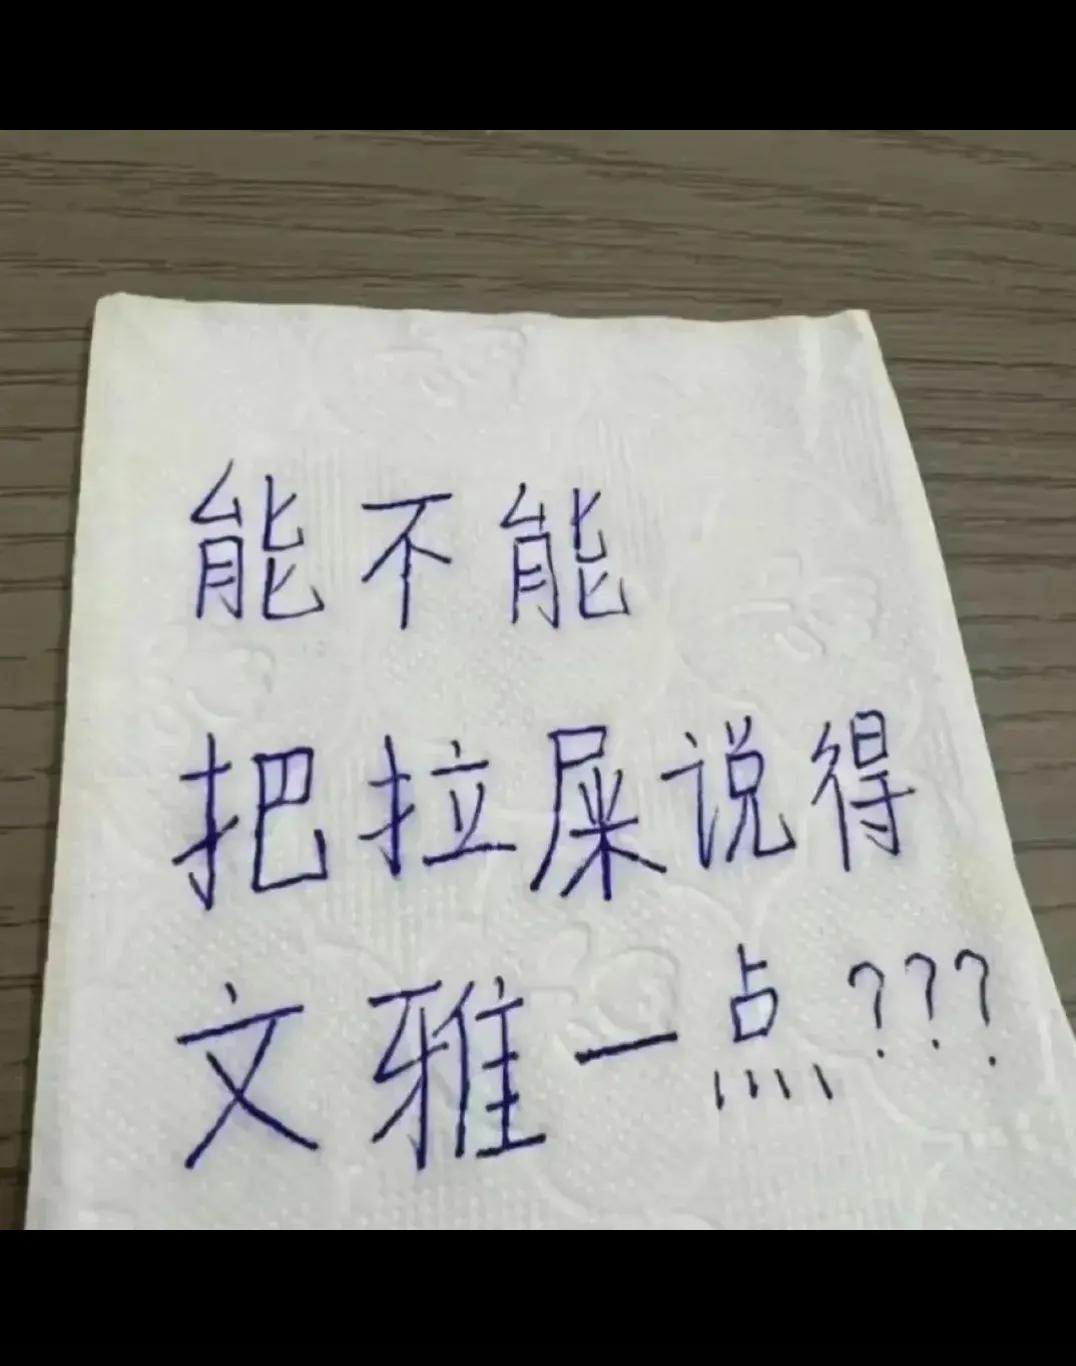 能不能
把拉屎说得
文雅一点???